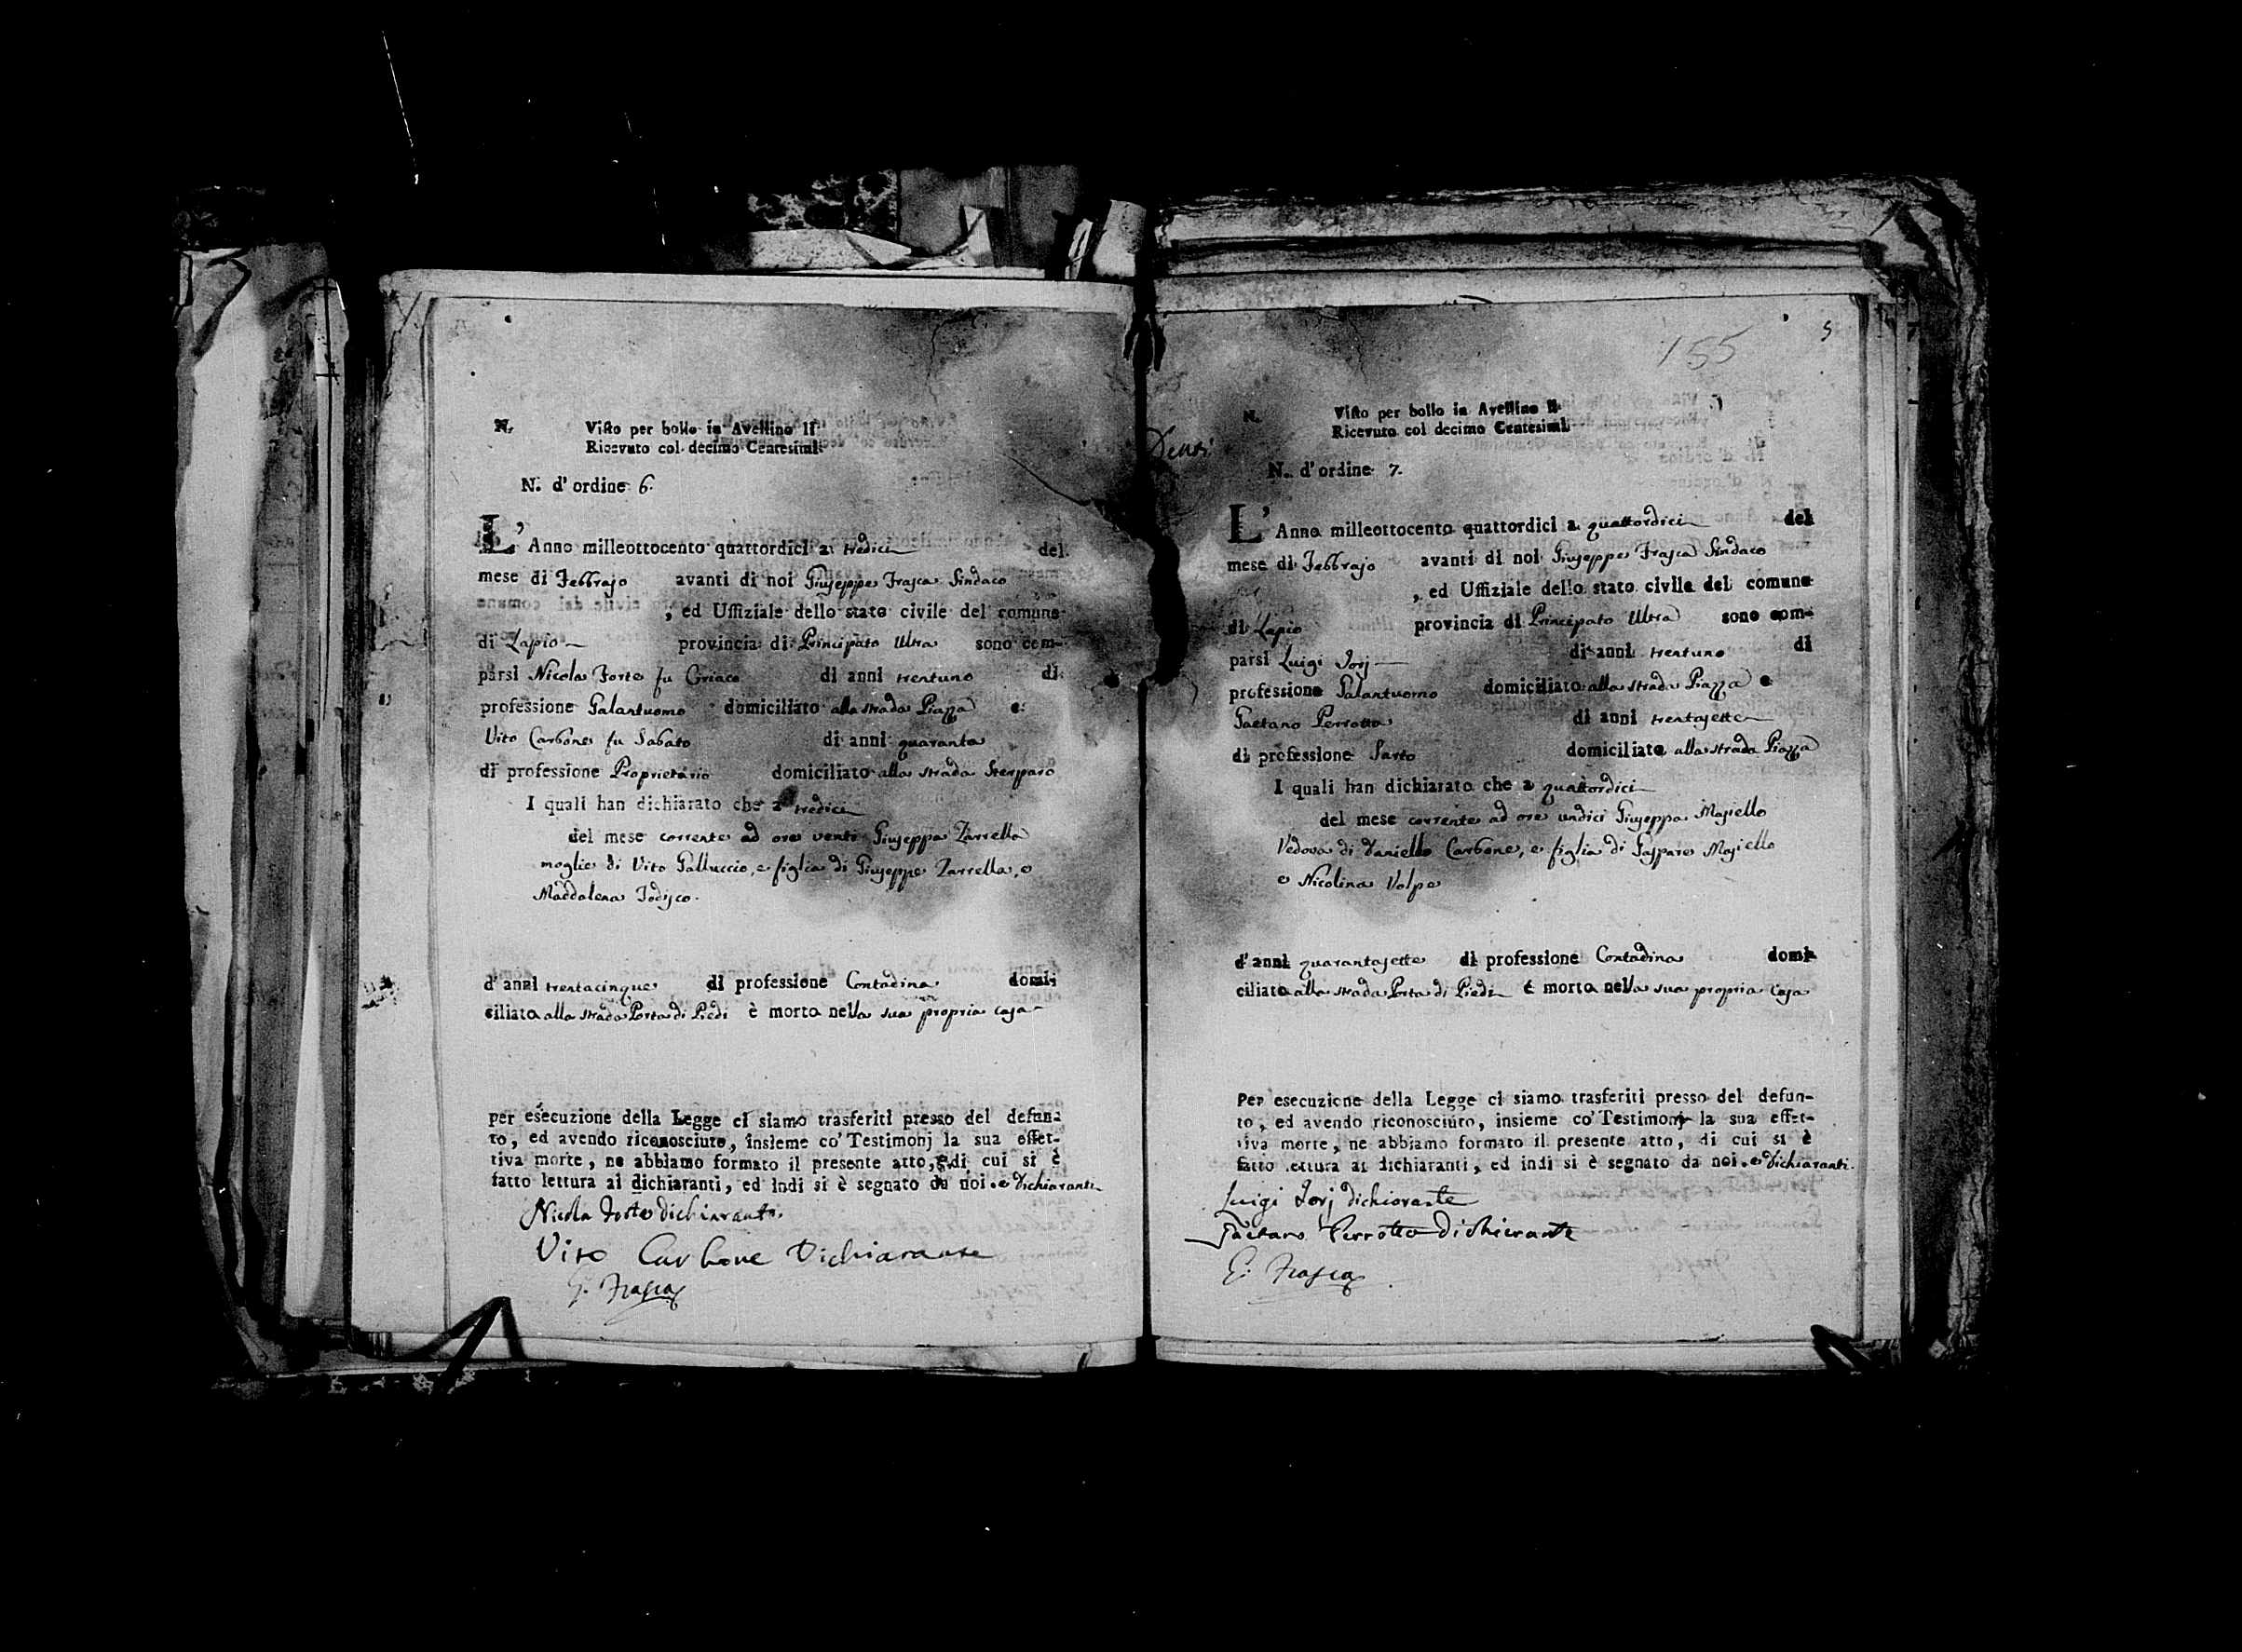 N. Visto per bollo in Avellino lì
Ricevuto col decimo Centesimi
N. d'ordine 6.
L'Anno milleottocento quattordici a tredici del
mese di Febbrajo avanti di noi Giuseppe Frasca Sindaco
, ed Uffiziale dello stato civile del comune
di Lapio provincia di Principato Ultra sono com-
parsi Nicola Forte fu Ciriaco di anni trentuno di
professione Galantuomo domiciliato alla strada Piazza e
Vito Carbone fu Sabato di anni quaranta
di professione Proprietario domiciliato alla strada Sterparo
I quali han dichiarato che a tredici
del mese corrente ad ore venti Giuseppa Zarrella
moglie di Vito Galluccio, e figlia di Giuseppe Zarrella, e
Maddalena Jodisco.
d'anni trentacinque di professione Contadina domi-
ciliata alla strada Porta di Piedi è morta nella sua propria casa
per esecuzione della Legge ci siamo trasferiti presso del defun-
to, ed avendo riconosciuto, insieme co' Testimonj la sua effet-
tiva morte, ne abbiamo formato il presente atto, di cui si è
fatto lettura ai dichiaranti, ed indi si è segnato da noi e dichiaranti
Nicola Forte dichiarante
Vito Carbone Dichiarante
G. Frasca
155
5
N. Visto per bollo in Avellino lì
Ricevuto col decimo Centesimi
N. d'ordine 7.
L'Anno milleottocento quattordici a quattordici del
mese di Febbrajo avanti di noi Giuseppe Frasca Sindaco
, ed Uffiziale dello stato civile del comune
di Lapio provincia di Principato Ultra sono com-
parsi Luigi Jorj di anni trentuno di
professione Galantuomo domiciliato alla strada Piazza e
Gaetano Perrotta di anni trentasette
di professione Sarto domiciliato alla strada Piazza
I quali han dichiarato che a quattordici
del mese corrente ad ore undici Giuseppa Masiello
Vedova di Daniello Carbone, e figlia di Gaspare Masiello
e Nicolina Volpe
d'anni quarantasette di professione Contadina domi-
ciliata alla strada Porta di Piedi è morta nella sua propria casa
Per esecuzione della Legge ci siamo trasferiti presso del defun-
to, ed avendo riconosciuto, insieme co' Testimonj la sua effet-
tiva morte, ne abbiamo formato il presente atto, di cui si è
fatto lettura ai dichiaranti, ed indi si è segnato da noi e dichiaranti.
Luigi Jorj dichiarante
Gaetano Perrotta dichiarante
G. Frasca